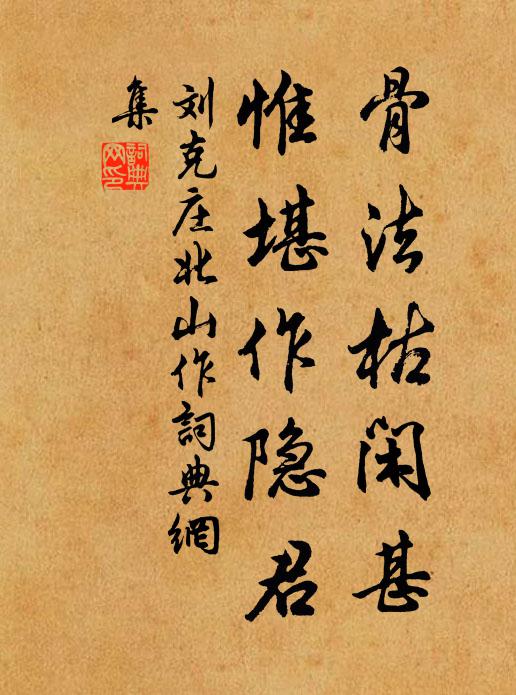 骨法枯闲甚
惟堪作隐君
刘克庄北山作詞典網
集
詞典
网印